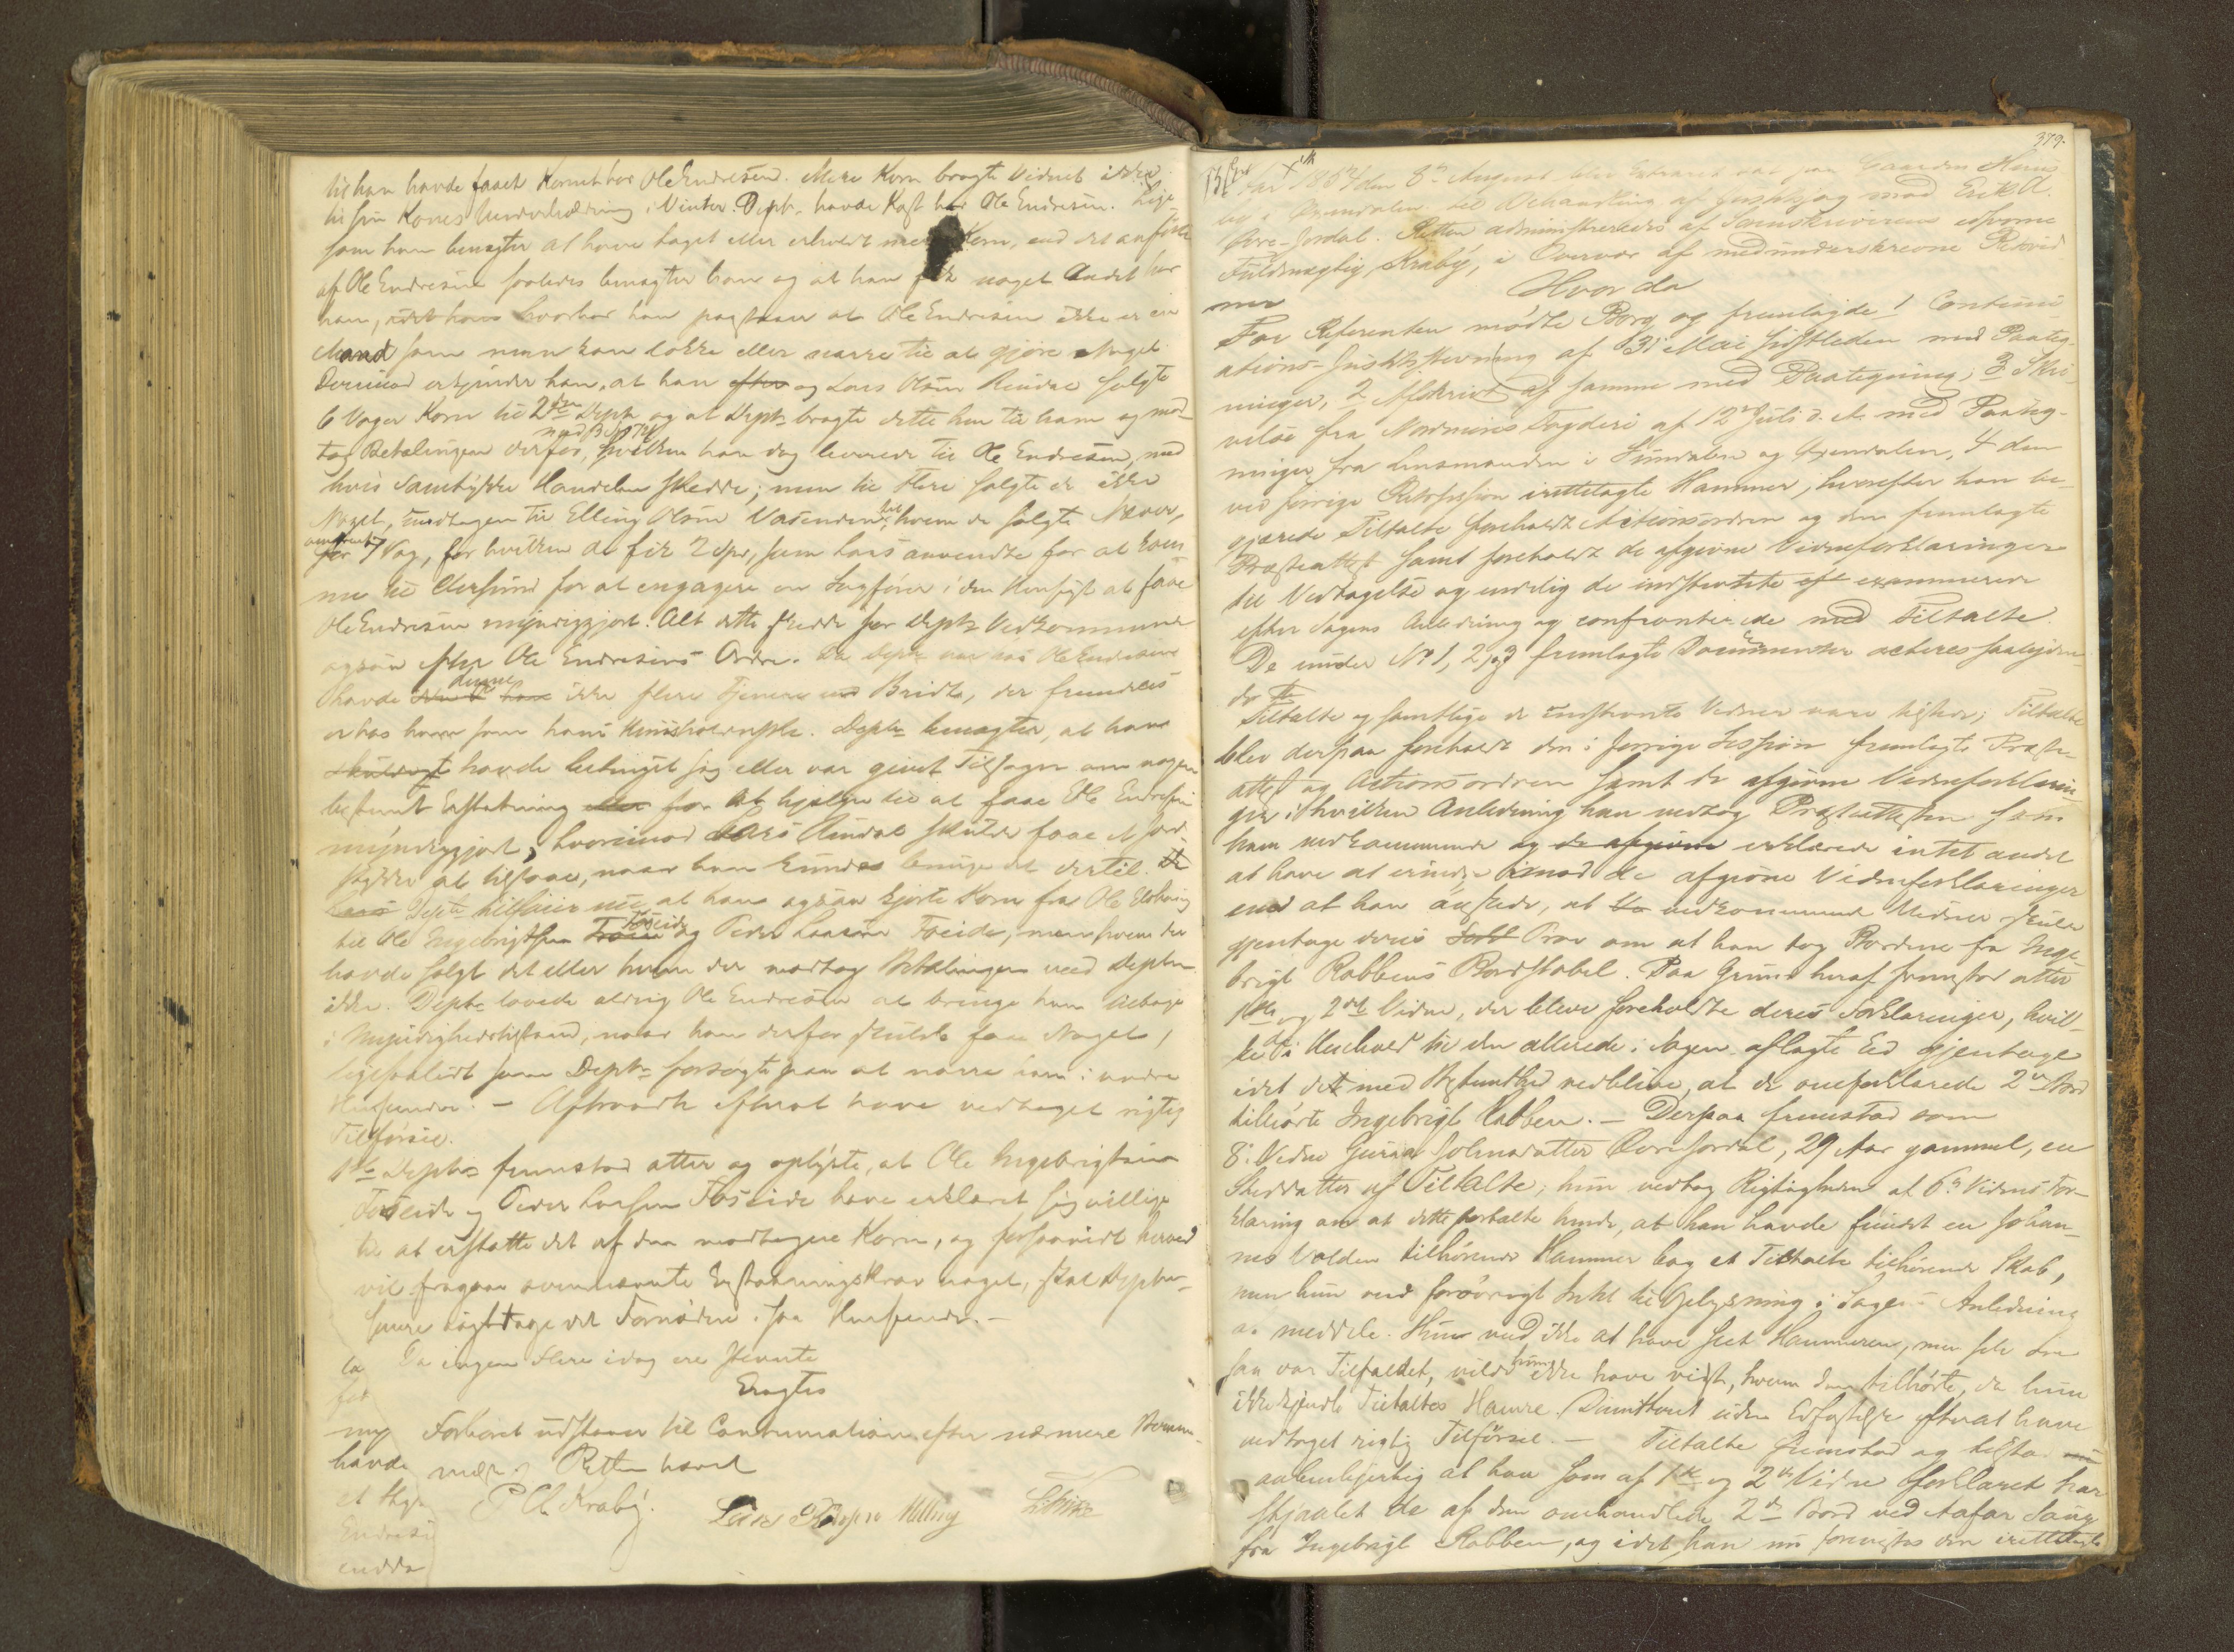 til han havde faaet Kornet hos Ole Endresen. Mere Korn bragte Vidnet ikke
til sin Kones Underholdning i Vinter. Dept. havde Kost hos Ole Endresen. Lige-
som han benegter at have taget eller erholdt mere Korn, end det anførte
af Ole Endresen saaledes benegter han og at han fik noget Andet hos
ham, hvorhos han paastaar at Ole Endresen ikke er en
Mand som man kan lokke eller narre til at gjøre Noget.
Derimod erkjender han, at han og Lars Olsen Rindal solgte
6 Voger Korn til 2den Dept. og at Dept. bragte dette hen til ham og mod-
tog Betalingen derfor, hvilken han dog leverede til Ole Endresen, med
hvis Samtykke Handelen skedde; men til Flere solgte de ikke
Noget, undtagen til Elling Olsen Vasenden, til hvem de solgte Næver,
omtrent 7 Vog, for hvilken de fik 2 Spd, som Lars anvendte for at kom-
me til Christiansund for at engagere en Sagfører i den Hensigt at faae
Ole Endresen myndiggjort. Alt dette skedde for Depts Vedkommende
ogsaa efter Ole Endresens Ordre. Da Dept. var hos Ole Endresen
havde denne ikke flere Tjenere end Bridt, der fremdeles
er hos ham som hans Huusholderske. Dept. benegter, at have
havde betinget sig eller var givet Tilsagn om nogen
bestemt Erstatning for at hjelpe til at faae Ole Endresen
myndiggjort, hvorimod Lars Rindal skulde faae et Jord-
stykke at tilstaae, naar han kunde bringe det dertil.
Dept. tilføier nu at han ogsaa kjørte Korn fra Ole Endresen
til Ole Ingebrigtsen Foseide og Peder Larsen Foseide, men hvem der
havde solgt det eller hvem der modtog Betalingen veed Depten
ikke. Dept. lovede aldrig Ole Endresen at bringe ham tilbage
i Myndighedstilstand, naar han derfor skulde faae Noget,
ligesaalidt som Dept. forsøgte paa at narre ham i andre
Henseender. – Aftraadte efterat have vedtaget rigtig
Tilførsel.
1ste Dept. fremstod atter og oplyste, at Ole Ingebrigtsen
Foseide og Peder Larsen Foseide have erklæret sig villige
til at erstatte det af dem modtagne Korn, og forsaavidt herved
vil fragaae ovennævnte Erstatningskrav noget, skal Depten
senere iagttage det Fornødne i saa Henseende. –
Da ingen Flere idag ere stevnte
Eragtes
Forhøret udstaaer til Continuation efter nærmere Beram-
melse. Retten hævet
P. Ch. Kraby. Lars
379.
Aar 1864 den 8de August blev Extraret sat paa Gaarden
i til Behandling af Justitssag mod Erik A.
Øvre-Jordal. Retten administreredes af Sorenskriverens edsvorne
Fuldmægtig Kraby, i Overvær af medunderskrevne Retsvid-
ner
Hvor da
For Referenten mødte Borg og fremlagde 1 Continu-
ations-Justits-Stevning af 31 Mai sidstleden med Paateg-
ninger, 2 Afskrivt af samme med Paategning, 3 Skri-
velse fra Nordmøres Fogderi af 12 Juli d. A. med Paateg-
ninger fra Lensmanden i Sundalen og Øxendalen, 4 den
ved forrige Retssession irettelagte Hammer, hvorefter han be-
gjærede Tiltalte foreholdt Actionsordren og den fremlagte
Præsteattest samt foreholdt de afgivne Vidneforklaringer
til Vedtagelse og endelig de indstevnte examinerede
efter Sagens Anledning og confronterede med Tiltalte.
De under No 1, 2 og 3 fremlagte Documenter acteres saalyden-
de
Tiltalte og samtlige de indstevnte Vidner vare tilstede; Tiltalte
blev derpaa foreholdt den i forrige Session fremlagte Præste-
attest og Actionsordren samt de afgivne Vidneforklarin-
ger i hvilken Anledning han vedtog Præsteattesten som
ham vedkommende og de afgivne erklærede intet andet
at have at erindre imod de afgivne Vidneforklaringer
end at han ønskede, at vedkommende Vidner skulde
gjentage deres Prov om at han tog Bordene fra Inge-
brigt Rabbens Bordstabel. Paa Grund heraf fremstod atter
1ste og 2det Vidne, der bleve foreholdte deres Forklaringer, hvil-
ke de i Henhold til den allerede i Sagen aflagte Ed gjentage
idet de med Bestemthed vedblive, at de omforklarede 2de Bord
tilhørte Ingebrigt Rabben. – Derpaa fremstod som
8. Vidne Guria Johnsdatter Øvre Jordal, 29 Aar gammel, en
Steddatter af Tiltalte; hun vedtog Rigtigheden af 6te Vidnes For-
klaring om at dette fortalte hende, at han havde fundet en Johan-
nes Volden tilhørende Hammer bag et Tiltalte tilhørende Skab,
men hun veed forøvrigt Intet til Oplysning i Sagens Anledning
at meddele. Hun veed ikke at have seet Hammeren, men selv om
saa var Tilfældet, vilde hun ikke have vidst, hvem den tilhørte, da hun
ikke kjendte Tiltaltes Hamre. Dimitteret uden Edfæstelse efterat have
vedtaget rigtig Tilførsel. – Tiltalte fremstod og tilstod
aabenhjertig at han som af 1ste og 2det Vidne forklaret har
stjaalet de af dem omhandlede 2de Bord ved Aafar Saug
fra Ingebrigt Rabben, og idet han nu forevistes den irettelagte